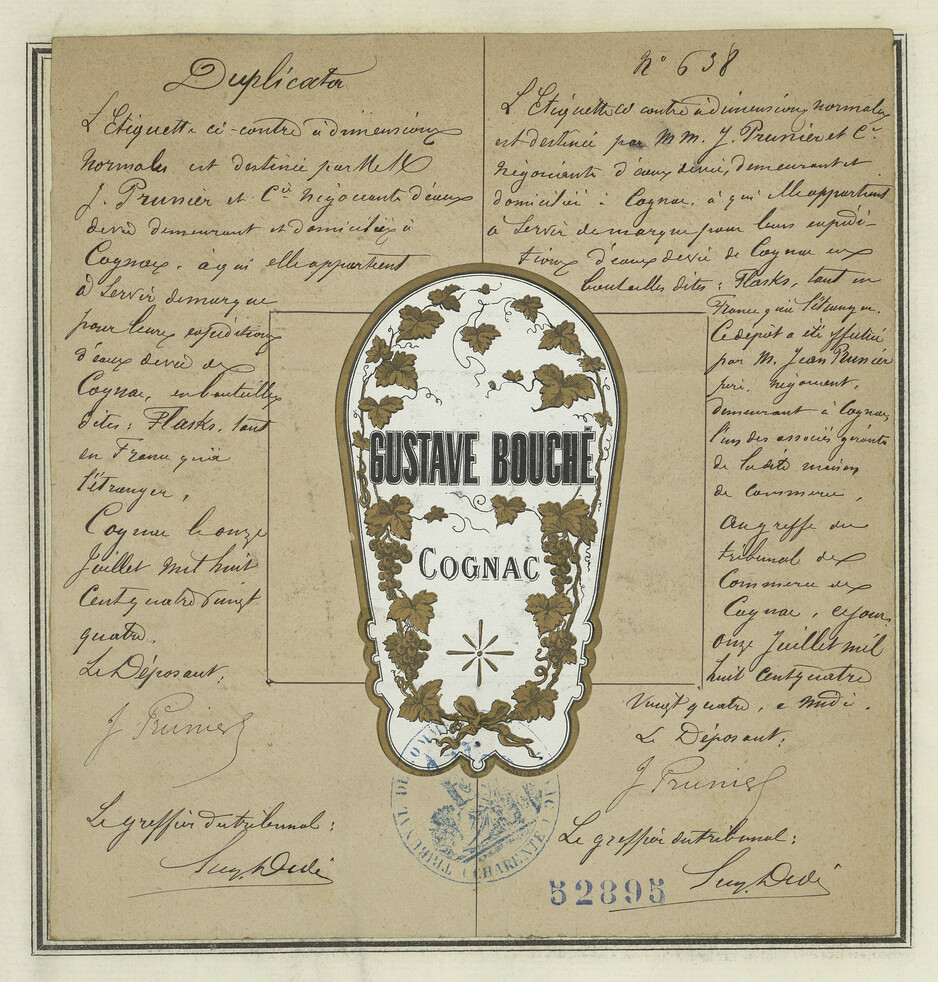 Duplicata
L'Etiquette ci-contre à dimensions
normales est destinée par MM
J. Prunier et Cie Négociants d'eaux
devie demeurant et domiciliés à
Cognac, à qui elle appartient
à servir de marque
pour leurs expéditions
d'eaux devie de
Cognac, en bouteilles
dites: Flasks, tant
en France qu'à
l'étranger,
Cognac le onze
Juillet mil huit
Cent quatre vingt
quatre.
Le Déposant,
J Prunier
Le greffier du tribunal:
No 638
L'Etiquette ci contre à dimensions normales
est destinée par MM. J. Prunier et Cie
Négociants d'eaux devie, demeurant et
domiciliés à Cognac, à qui elle appartient
à servir de marque pour leurs expédi-
tions d'eaux devie de Cognac en
bouteilles dites: Flasks, tant en
France qu'à l'étranger.
Ce dépôt a été effectué
par M. Jean Prunier
père, négociant,
demeurant à Cognac,
l'un des associés gérants
de la dite maison
de commerce,
Au greffe du
tribunal de
Commerce de
Cognac, ce jour
onze Juillet mil
huit cent quatre
Vingt quatre, à midi.
Le Déposant:
J Prunier
Le greffier du tribunal:
GUSTAVE BOUCHÉ
COGNAC
TRIBUNAL DE COMM
(CHARENTE)
52895